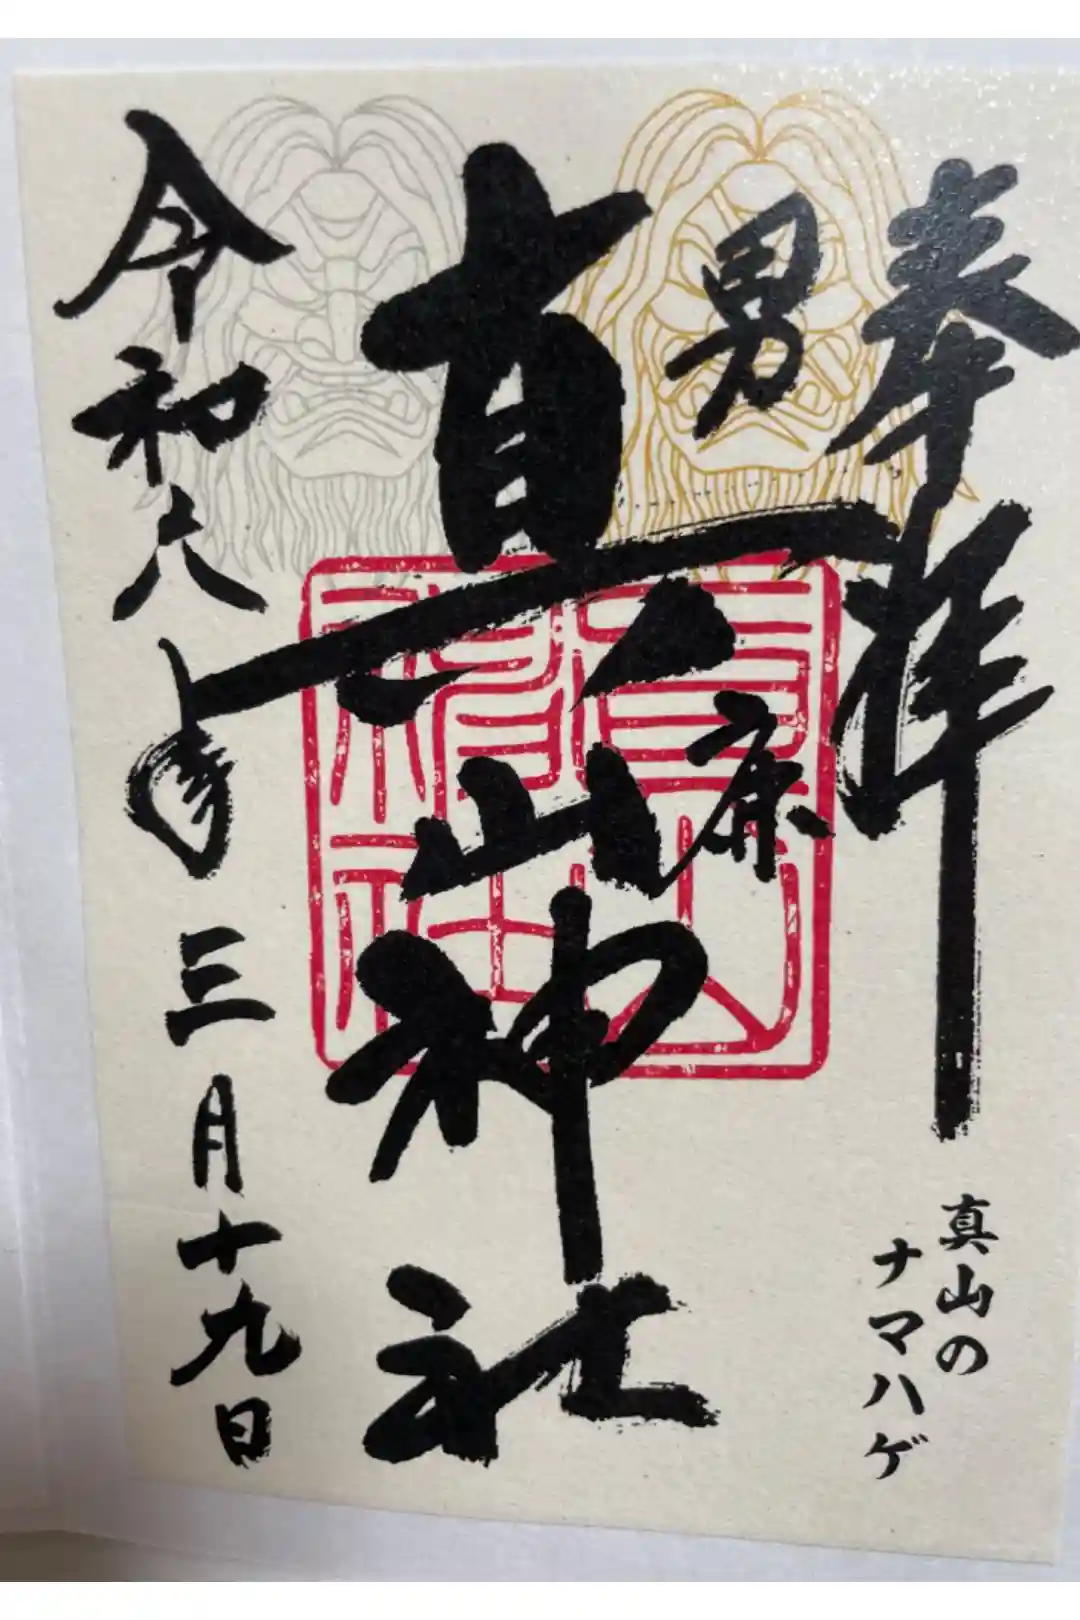 奉拝
真山の
ナマハゲ
男鹿
真山神社
令和六年三月十九日